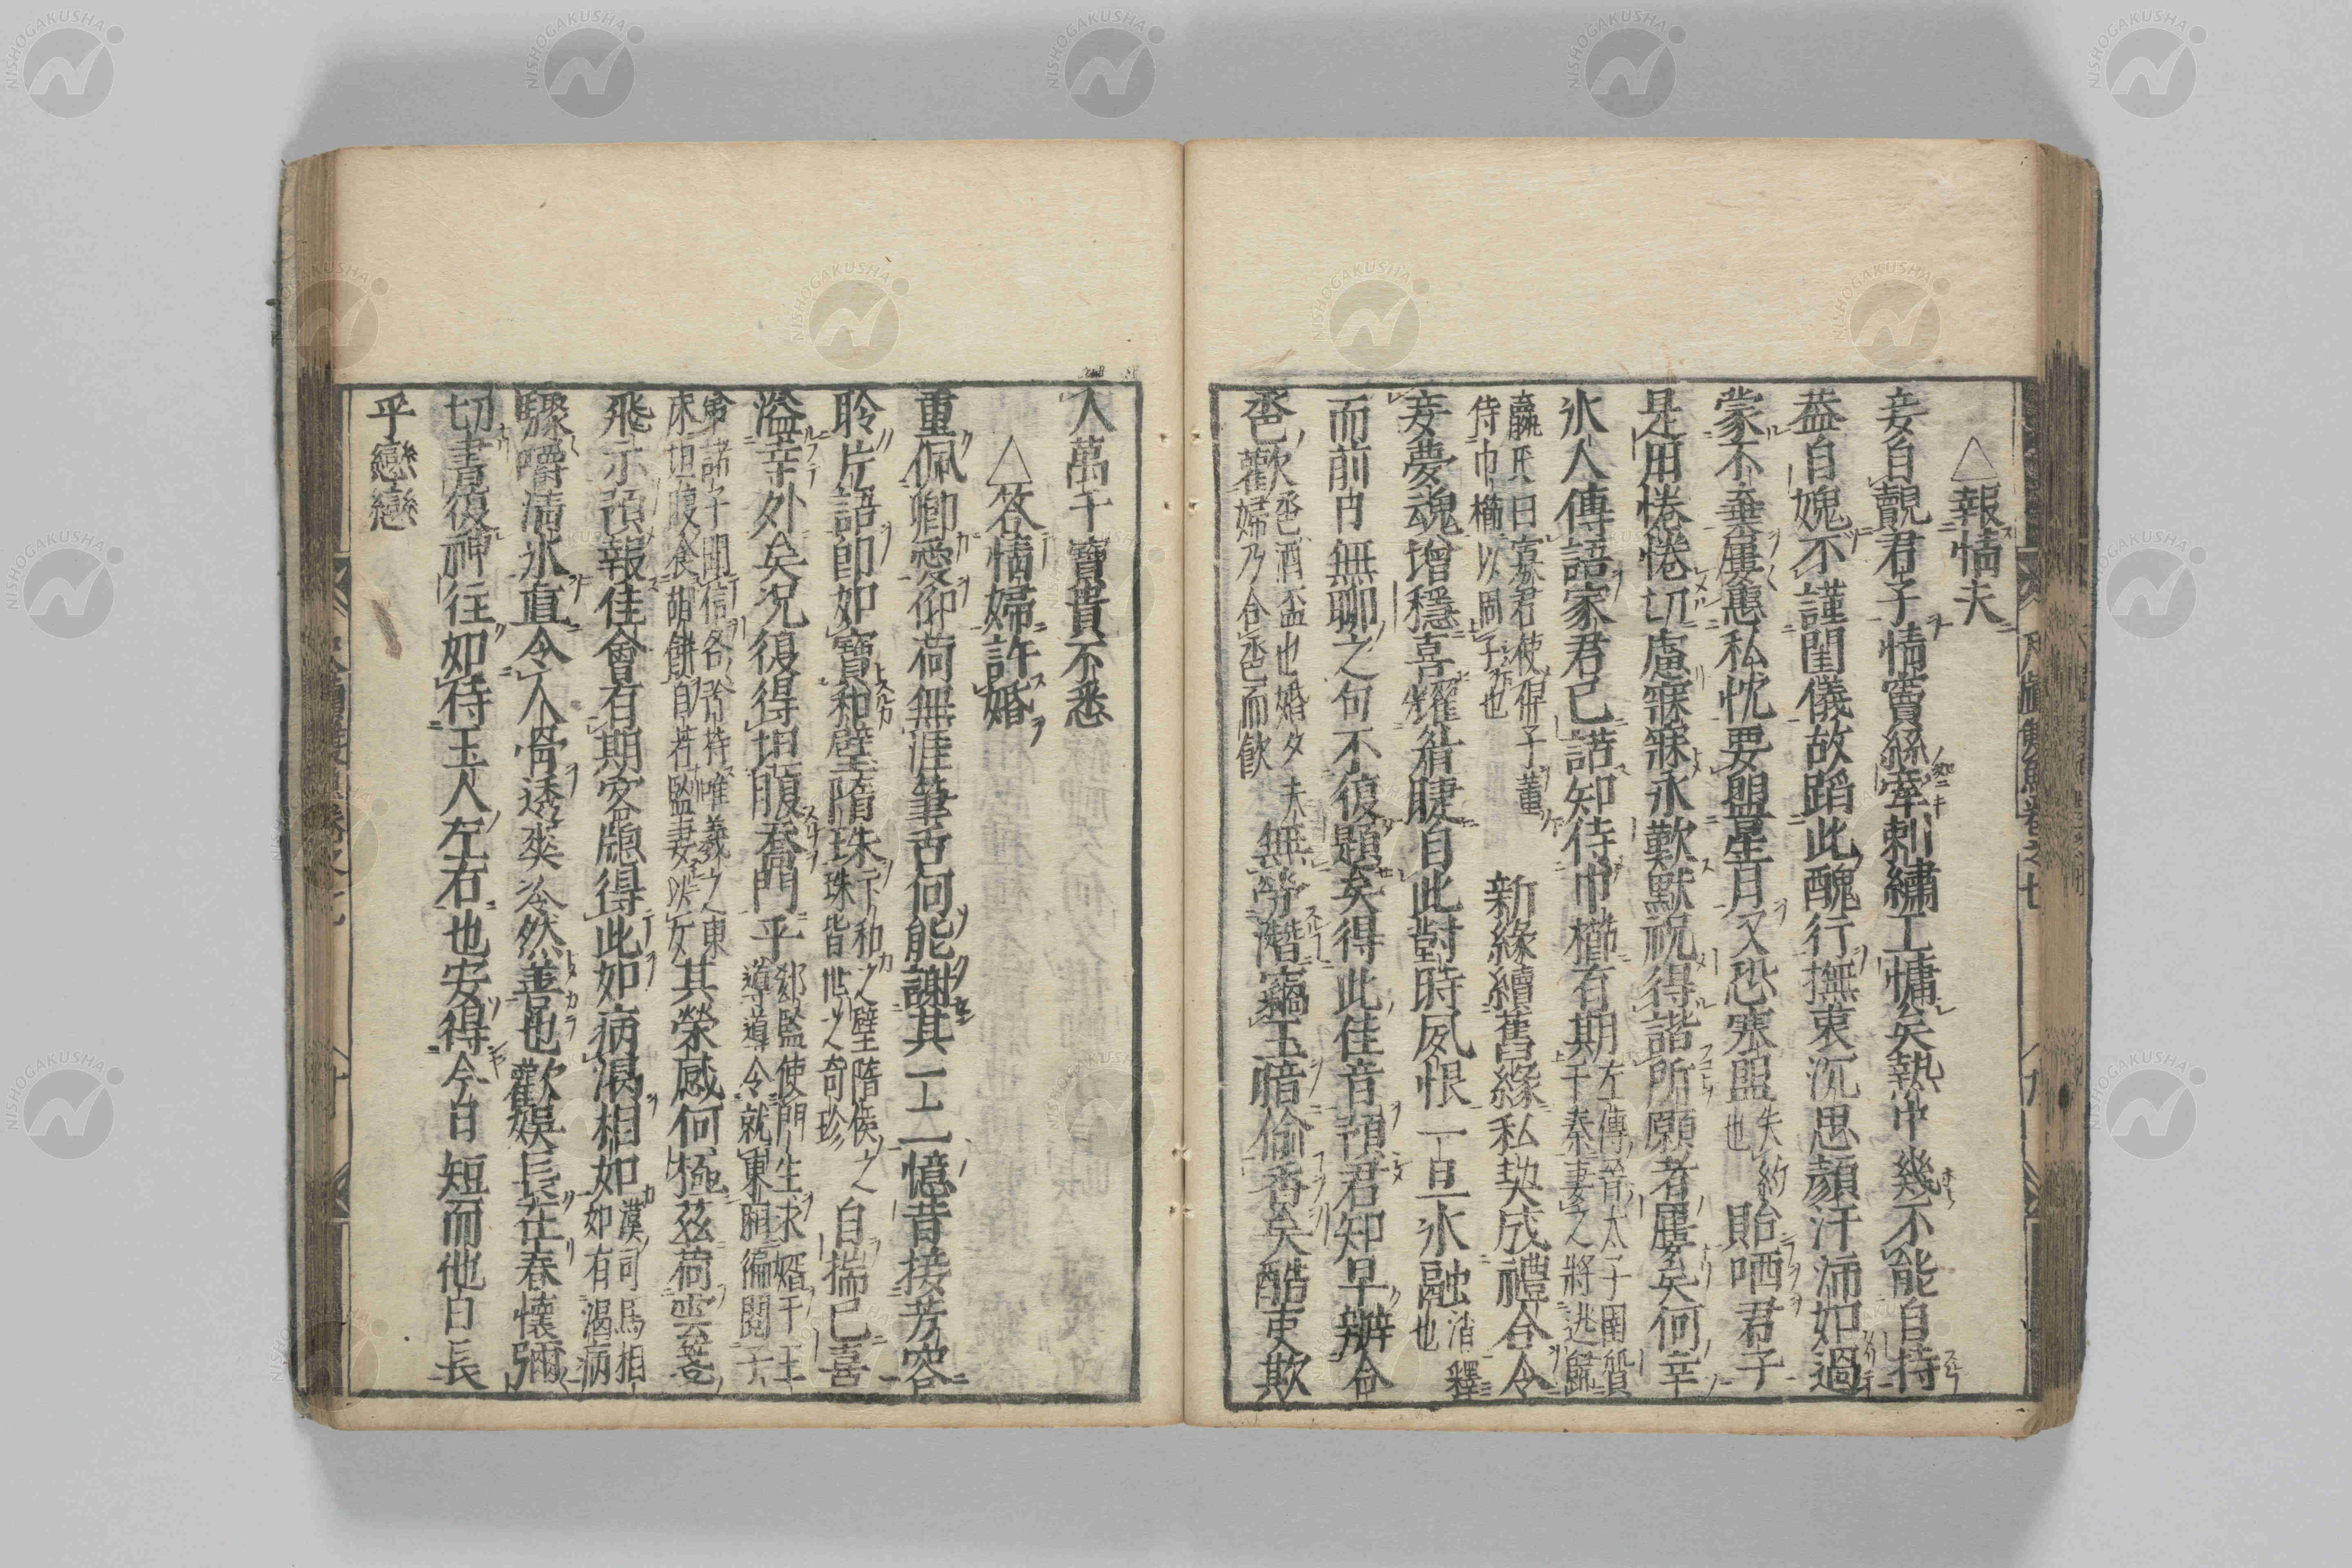 △報情夫
妾自覿君子情竇絲牽刺繡工慵矣熱中幾不能自持
益自媿不謹閨儀故蹈此醜行撫衷沉思顏汗沛如過
蒙不棄屢惠私忱要盟星月又恐寒盟失約也貽哂君子
是用惓惓切慮寤寐永歎默祝得諧所願者屢矣何辛
氷人傳語家君已諾知待巾櫛有期左傳晉太子圉質于秦妻之將逃歸
嬴氏曰寡君使婢子侍巾櫛以固子也新緣續舊緣私契成禮合令
妾夢魂增穩喜躍眉睫自此對時夙恨一旦氷融消釋也
而前月無聊之句不復題矣得此佳音預君知早辦合
巹歡巹酒盃也婚夕夫婦乃合巹而飲無勞潛窺玉暗偷香矣酷吏欺
人萬千寶貴不悉
△答情婦許婚
重佩卿愛仰荷無涯筆舌何能謝其一二憶昔接芳容
聆片語即如寶和璧隋珠卞和之璧隋侯之珠皆世之奇珍自揣已喜
溢辛外矣況復得坦腹喬門乎郄監使門生求婿于王導導令就東廂徧閱子
弟諸子聞信各矜持唯羲之東床坦腹食胡餅自若監妻以女其榮感何極茲荷雲箋
飛示預報佳會有期客牕得此如病渴相如漢司馬相如有渴病
驟嚼清氷直令人骨透爽冷然善也歡娛長在春懷彌
切書復神往如待玉人左右也安得今日短而他日長
乎戀戀